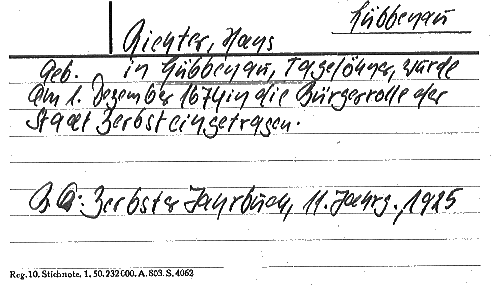 Lübbenau
Richter, Hans
Geb. in Lübbenau, Tagelöhner, wurde
am 1. Dezember 1674 in die Bürgerrolle der
Stadt Zerbst eingetragen.
B Q: Zerbster Jahrbuch, 11. Jahrg., 1925
Reg. 10. Stichnote. 1. 50. 232 000. A. 803. S. 4062